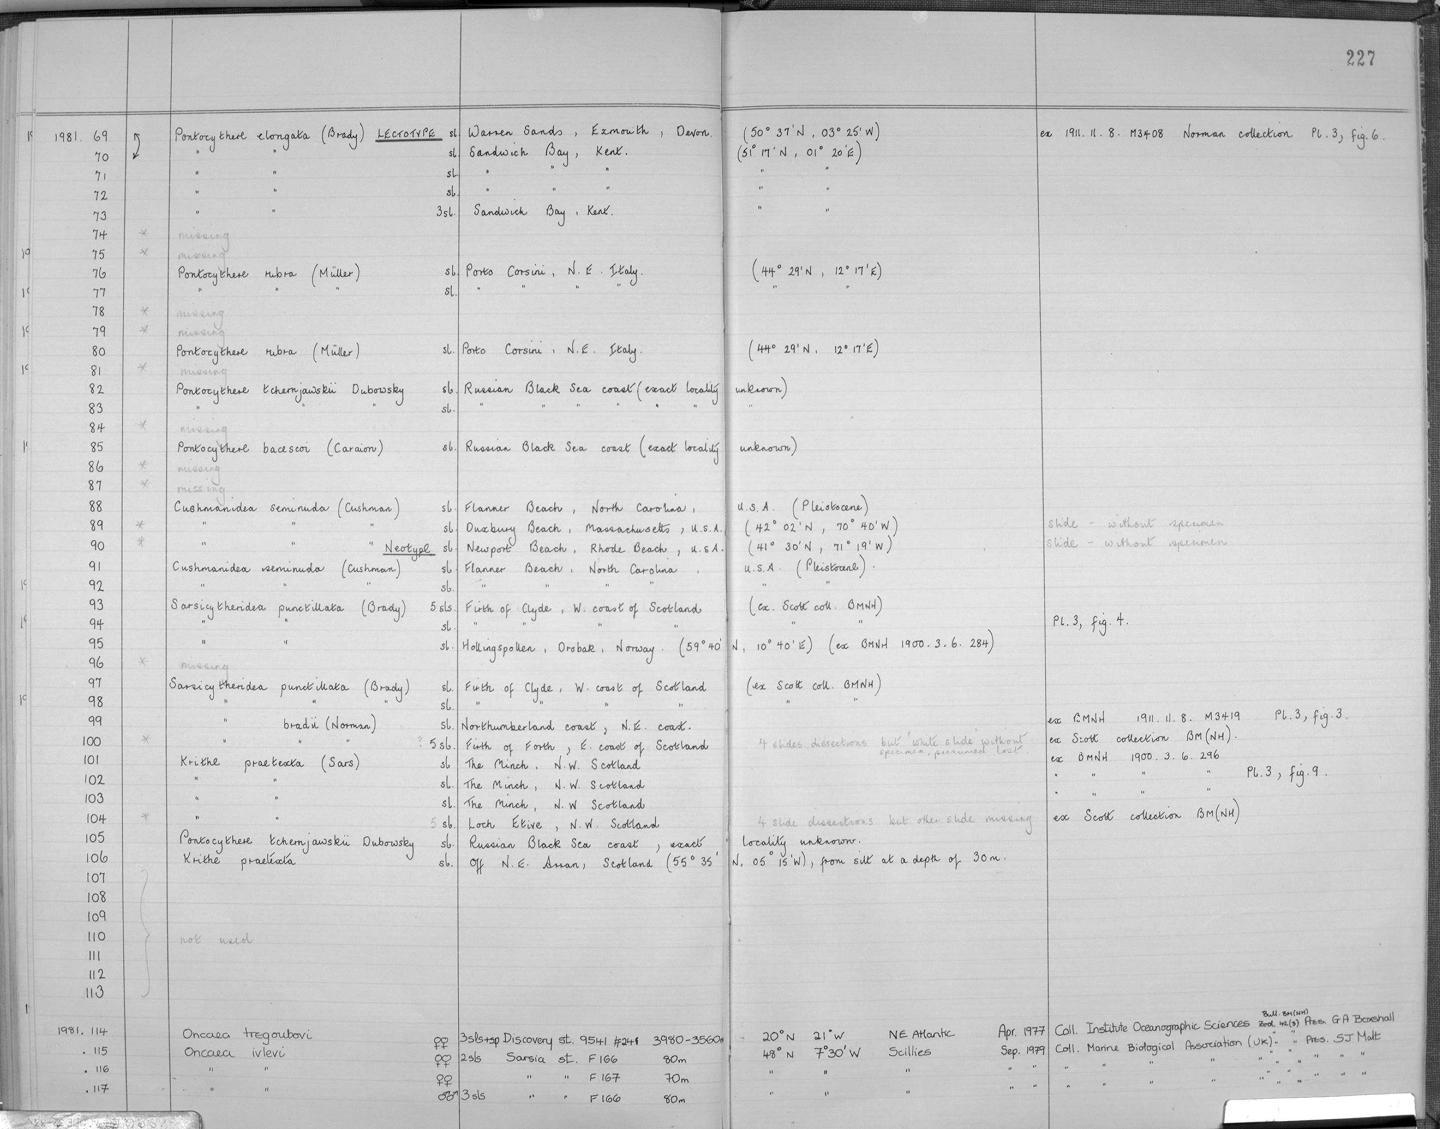 227
1981. 69 Pontocythere elongata (Brady) LECTOTYPE sl. Warren Sands, Exmouth, Devon. (50° 37'N, 03° 25'W) ex 1911. 11. 8. M3408 Norman collection Pl. 3, fig. 6.
70 " " sl. Sandwich Bay, Kent. (51° 17'N, 01° 20'E)
71 " " sl. " " " " "
72 " " sl. " " " " "
73 " " 3sl. Sandwich Bay, Kent. " "
74 * missing
75 * missing
76 Pontocythere rubra (Müller) sl. Porto Corsini, N.E. Italy. (44° 29'N, 12° 17'E)
77 " " " sl. " " " " " "
78 * missing
79 * missing
80 Pontocythere rubra (Müller) sl. Porto Corsini, N.E. Italy. (44° 29'N, 12° 17'E)
81 * missing
82 Pontocythere tchernjawskii Dubowsky sl. Russian Black Sea coast (exact locality unknown)
83 " " " sl. " " " " " " "
84 * missing
85 Pontocythere bacescoi (Caraion) sl. Russian Black Sea coast (exact locality unknown)
86 * missing
87 * missing
88 Cushmanidea seminuda (Cushman) sl. Flanner Beach, North Carolina, U.S.A. (Pleistocene)
89 * " " " sl. Duxbury Beach, Massachusetts, U.S.A. (42° 02'N, 70° 40'W) slide - without specimen
90 * " " " Neotype sl. Newport Beach, Rhode Beach, U.S.A. (41° 30'N, 71° 19'W) slide - without specimen
91 Cushmanidea seminuda (Cushman) sl. Flanner Beach, North Carolina, U.S.A. (Pleistocene).
92 " " " sl. " " " " " "
93 Sarsicytheridea punctillata (Brady) 5 sls. Firth of Clyde, W. coast of Scotland (ex. Scott coll. BMNH)
94 " " sl. " " " " " " Pl. 3, fig. 4.
95 " " sl. Hollingspollen, Drobak, Norway. (59° 40'N, 10° 40'E) (ex BMNH 1900. 3. 6. 284)
96 * missing
97 Sarsicytheridea punctillata (Brady) sl. Firth of Clyde, W. coast of Scotland (ex Scott coll. BMNH)
98 " " " sl. " " " " " "
99 " bradii (Norman) sl. Northumberland coast, N.E. coast. ex BMNH 1911. 11. 8. M3419 Pl. 3, fig. 3.
100 * " " " ? 5 sl. Firth of Forth, E. coast of Scotland 4 slides dissections but 'white slide' without specimen, presumed lost ex Scott collection BM(NH).
101 Krithe praetexta (Sars) sl. The Minch, N.W. Scotland ex BMNH 1900. 3. 6. 296
102 " " sl. The Minch, N.W. Scotland " " " " Pl. 3, fig. 9.
103 " " sl. The Minch, N.W Scotland " " " "
104 * " " 5 sl. Loch Etive, N.W. Scotland 4 slide dissections but other slide missing ex Scott collection BM(NH)
105 Pontocythere tchernjawskii Dubowsky sl. Russian Black Sea coast, exact locality unknown.
106 Krithe praetexta sl. Off N.E. Arran, Scotland (55° 35' N, 05° 15'W), from silt at a depth of 30m.
107
108
109
110 not used
111
112
113
1981. 114 Oncaea tregoubovi ♀♀ 3sls+sp Discovery st. 9541 #24 3980-3560m 20°N 21°W NE Atlantic Apr. 1977 Coll. Institute Oceanographic Sciences Bull. BM(NH) Zool. 42(3) Pres. G A Boxshall
. 115 Oncaea ivlevi ♀♀ 2sls Sarsia st. F166 80m 48°N 7°30'W Scillies Sep. 1979 Coll. Marine Biological Association (UK) " " Pres. S J Malt
. 116 " " ♀♀ " " F167 70m " " " " " " " " " " " " "
. 117 " " ♂♂ 3sls " " F166 80m " " " " " " " " " " " " "